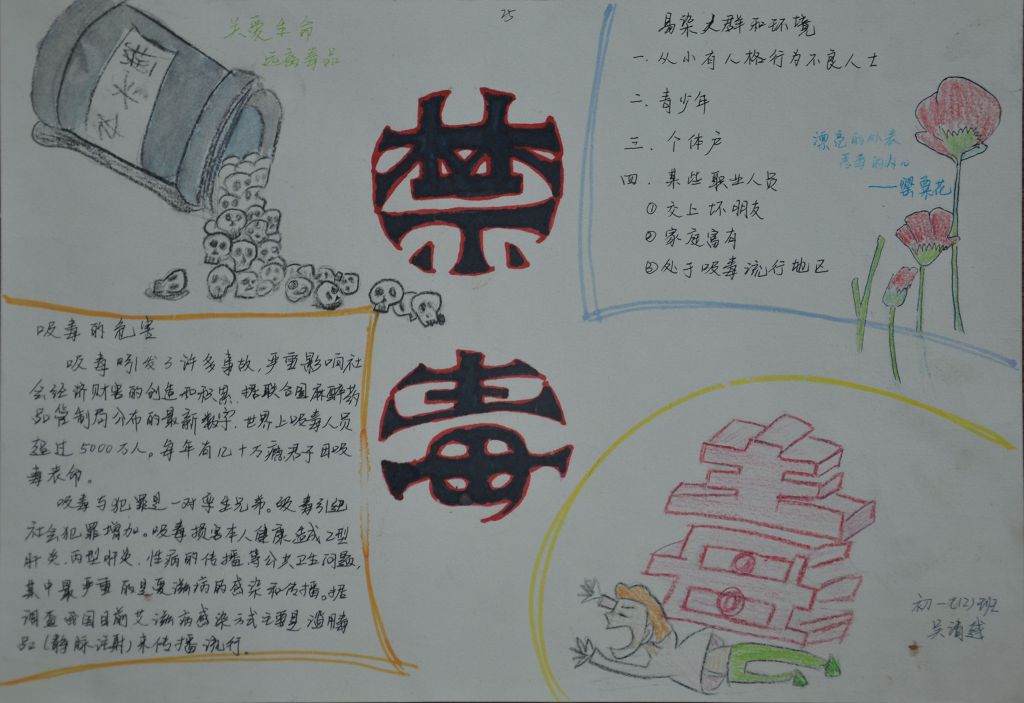 25
关爱生命
远离毒品
禁
毒
易染人群和环境
一.从小有人格行为不良人士
二.青少年
三.个体户
四.某些职业人员
①交上坏朋友
②家庭富有
③处于吸毒流行地区
漂亮的外表
——罂粟花
吸毒的危害
吸毒引发了许多事故,严重影响社
会经济财富的创造和积累.据联合国麻醉药
品管制局分布的最新数字,世界上吸毒人员
超过5000万人。每年有几十万瘾君子因吸
毒丧命。
吸毒与犯罪是一对孪生兄弟。吸毒引起
社会犯罪增加。吸毒损害本人健康,造成乙型
肝炎、丙型肝炎、性病的传播等公共卫生问题,
其中最严重的是艾滋病的感染和传播。据
调查我国目前艾滋病感染方式主要是
品(静脉注射)来传播流行.
毒
初一(2)班
吴清越